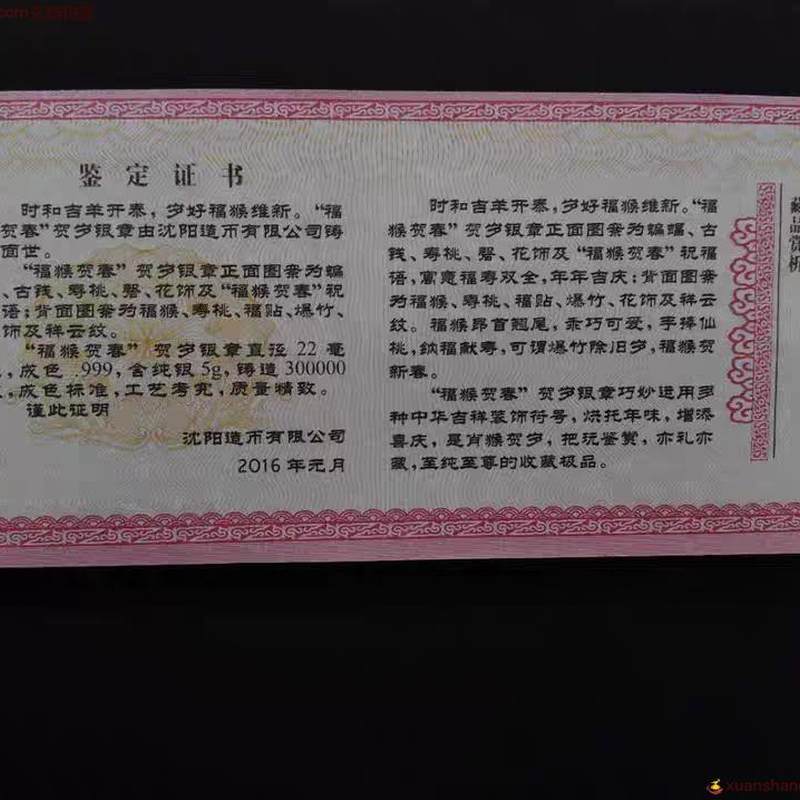 鉴定证书
时和吉羊开泰，岁好福猴维新。“福
贺春”贺岁银章由沈阳造币有限公司铸
面世。
“福猴贺春”贺岁银章正面图案为蝙
、古钱、寿桃、磬、花饰及“福猴贺春”祝
语；背面图案为福猴、寿桃、福贴、爆竹、
饰及祥云纹。
“福猴贺春”贺岁银章直径 22 毫
，成色 .999，含纯银 5g，铸造 300000
，成色标准，工艺考究，质量精致。
谨此证明
沈阳造币有限公司
2016 年元月
时和吉羊开泰，岁好福猴维新。“福
猴贺春”贺岁银章正面图案为蝙蝠、古
钱、寿桃、磬、花饰及“福猴贺春”祝福
语，寓意福寿双全，年年吉庆；背面图案
为福猴、寿桃、福贴、爆竹、花饰及祥云
纹。福猴昂首翘尾，乖巧可爱，手捧仙
桃，纳福献寿，可谓爆竹除旧岁，福猴贺
新春。
“福猴贺春”贺岁银章巧妙运用多
种中华吉祥装饰符号，烘托年味，增添
喜庆，是肖猴贺岁，把玩鉴赏，亦礼亦
藏，至纯至尊的收藏极品。
藏品赏析
xuanshang